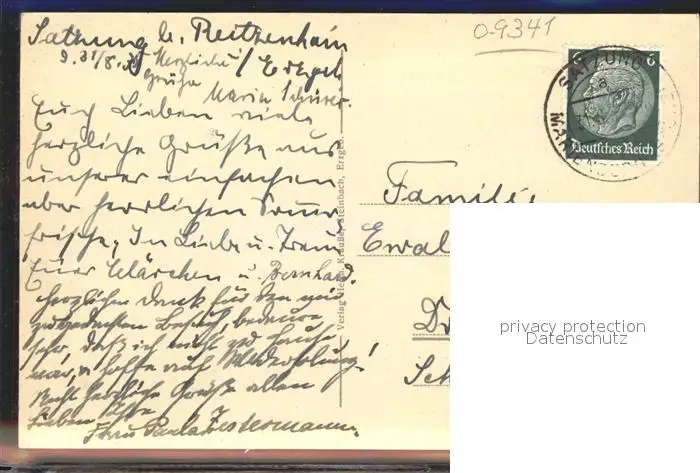 0-9341
Satzung b. Reitzenhain
9. 31/8. 39 Herzliche / Erzgeb.
Grüße
Maria Schürer.
Euch Lieben viele
herzliche Grüße aus
unserer einfachen
aber herrlichen Sommer
frische, In Liebe u. Treue
Euer Klärchen u. Bernhard.
Herzlichen Dank für den mir
zugedachten Besuch, bedaure
sehr, daß ich nicht zu Hause
war, u. hoffe auf Wiederholung!
Recht herzliche Grüße allen
Lieben Ihre
Frau Paula Zestermann.
Verlag Steinbach, Erzgeb.
SATZUNG
Deutsches Reich
Familie
Ewal
Dr
Sch
privacy protection
Datenschutz